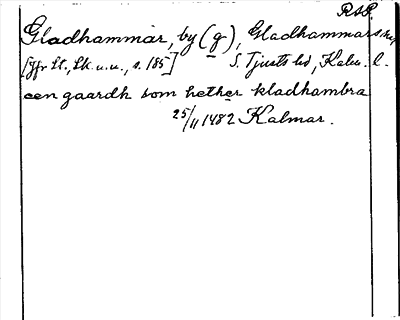 RAP.
Gladhammar, by (g), Gladhammars
[Jfr St., Sk. u.u., s. 185] S. Tjusts hd, Kalm. l.
een gaardh som hether kladhambra
25/11 1482 Kalmar.